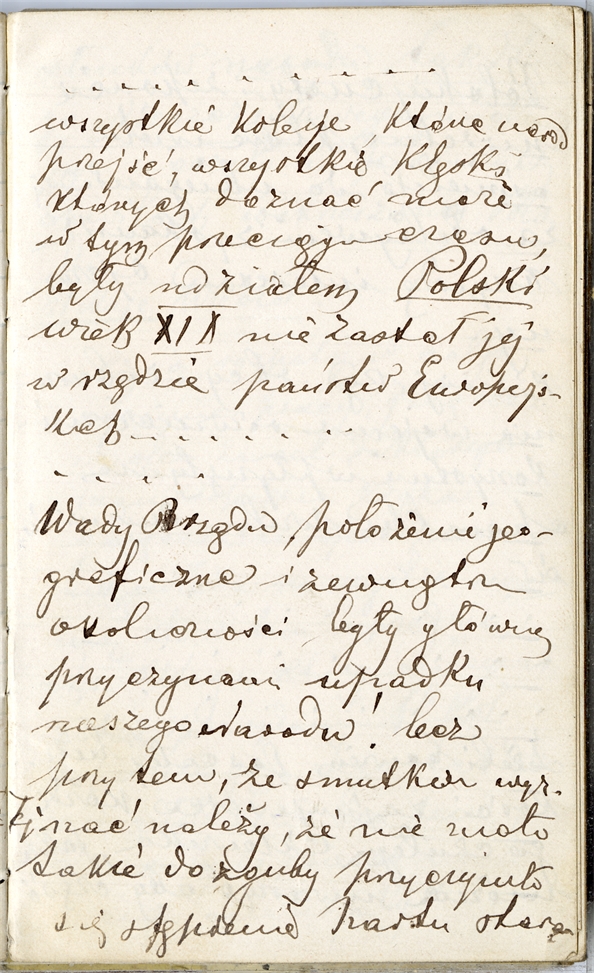 . . . . . . . . . . . .
wszystkie Koleje, Które naród
przejść, wszystkie Klęski
których doznać może
w tym przeciągu czasu,
były udziałem Polski
wiek XIX nie zastał jej
w rzędzie państw Europejs-
kich - . . . . . .
. . . . .
Wady Rządu, położenie jeo-
graficzne i zewnętrzn
okoliczności były główną
przyczynami upadku
naszego Narodu! lecz
przy tem, że smutkiem wyz-
nać należy, że nie mało
takie do zguby przyczyniło
się stępienie hartu